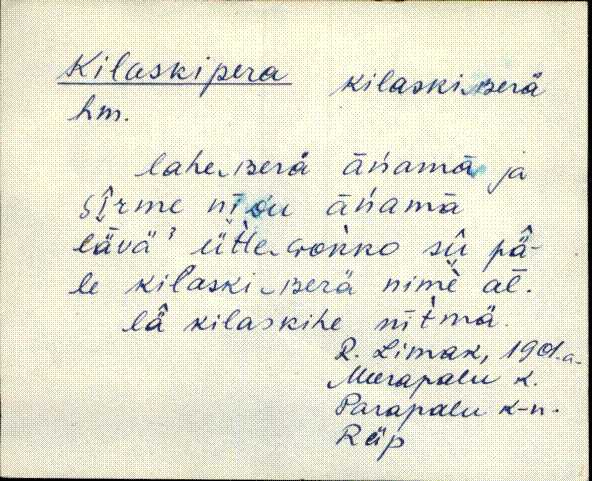 Kilaskipera kilaski‿ʙerä
hm.
lahe‿ʙerä āńamä ja
āńamä
lävä’ üt̀te‿ɢoǹko sū̂ pǟ̂-
le kilaski‿ʙerä nimè al.
lǟ̂ kilaskihe nīt̀mä.
R. Limak, 1901.a.
Meerapalu k.
Parapalu k-n.
Räp